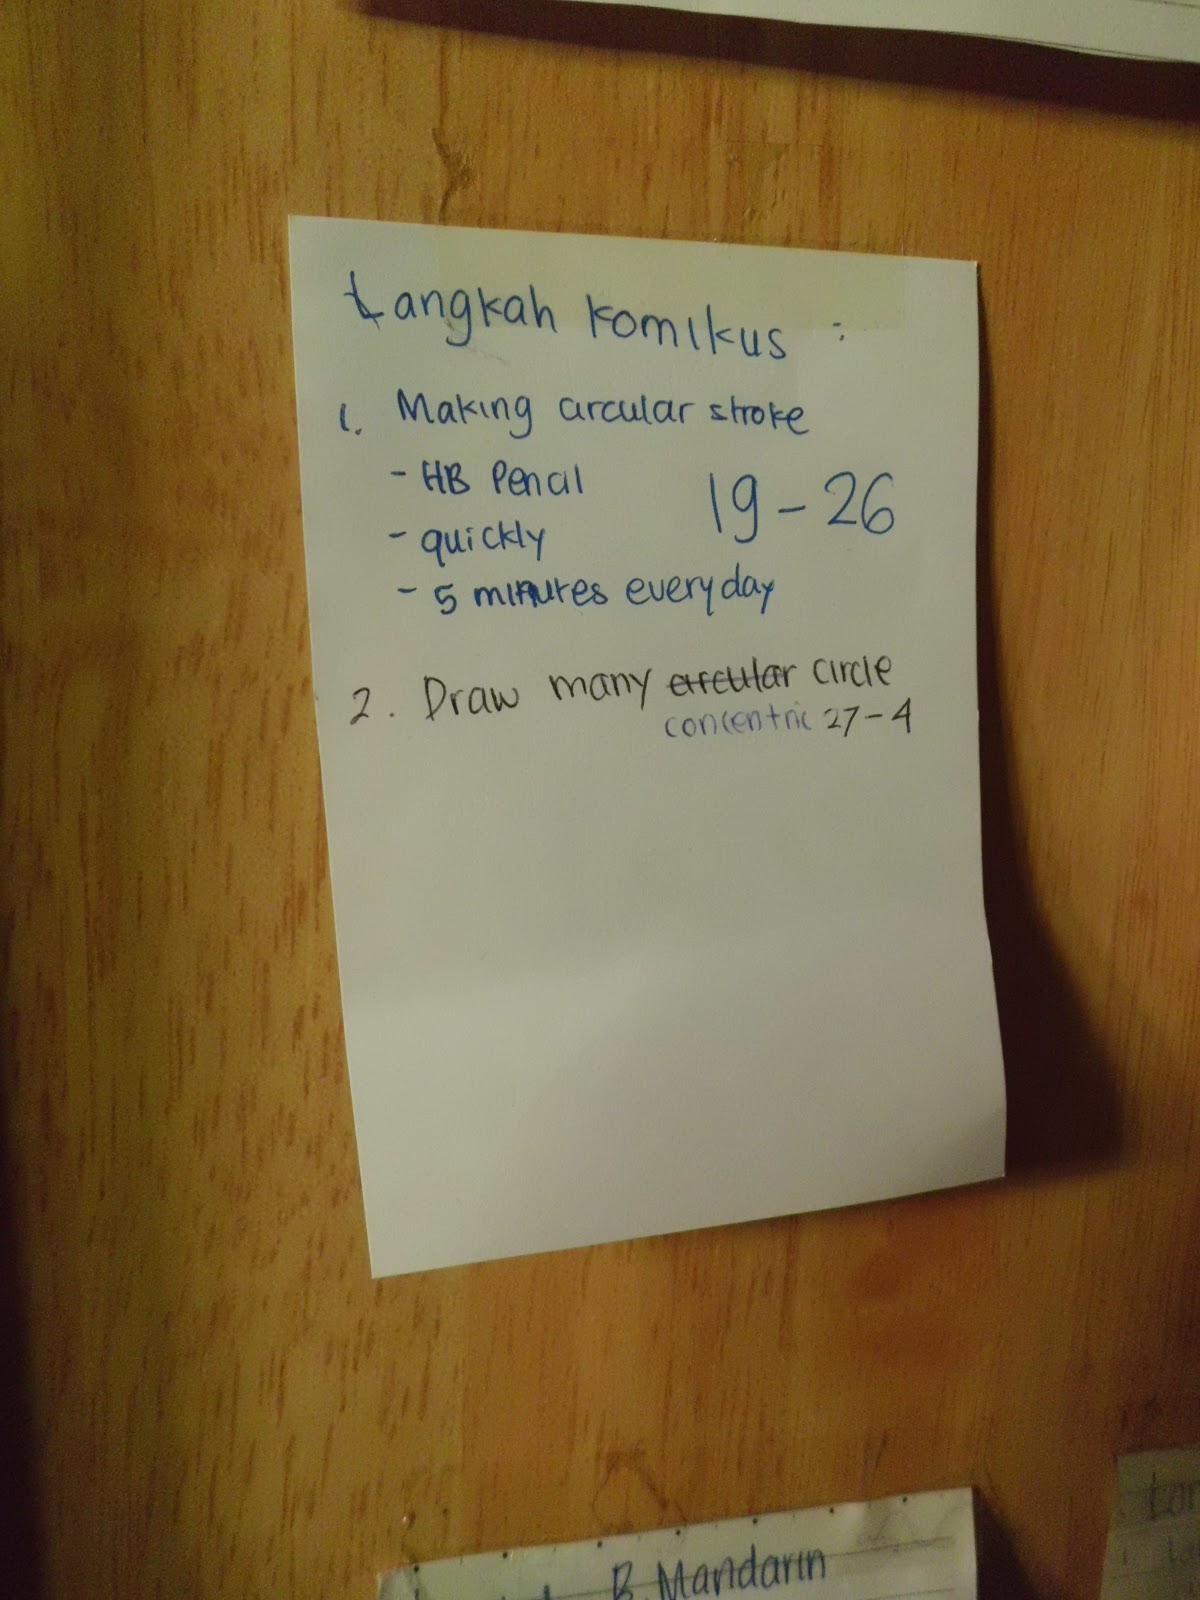 Langkah komikus :
1. Making circular stroke
- HB Pencil
19-26
- quickly
- 5 minutes everyday
2. Draw many circular circle
concentric 27-4
B. Mandarin